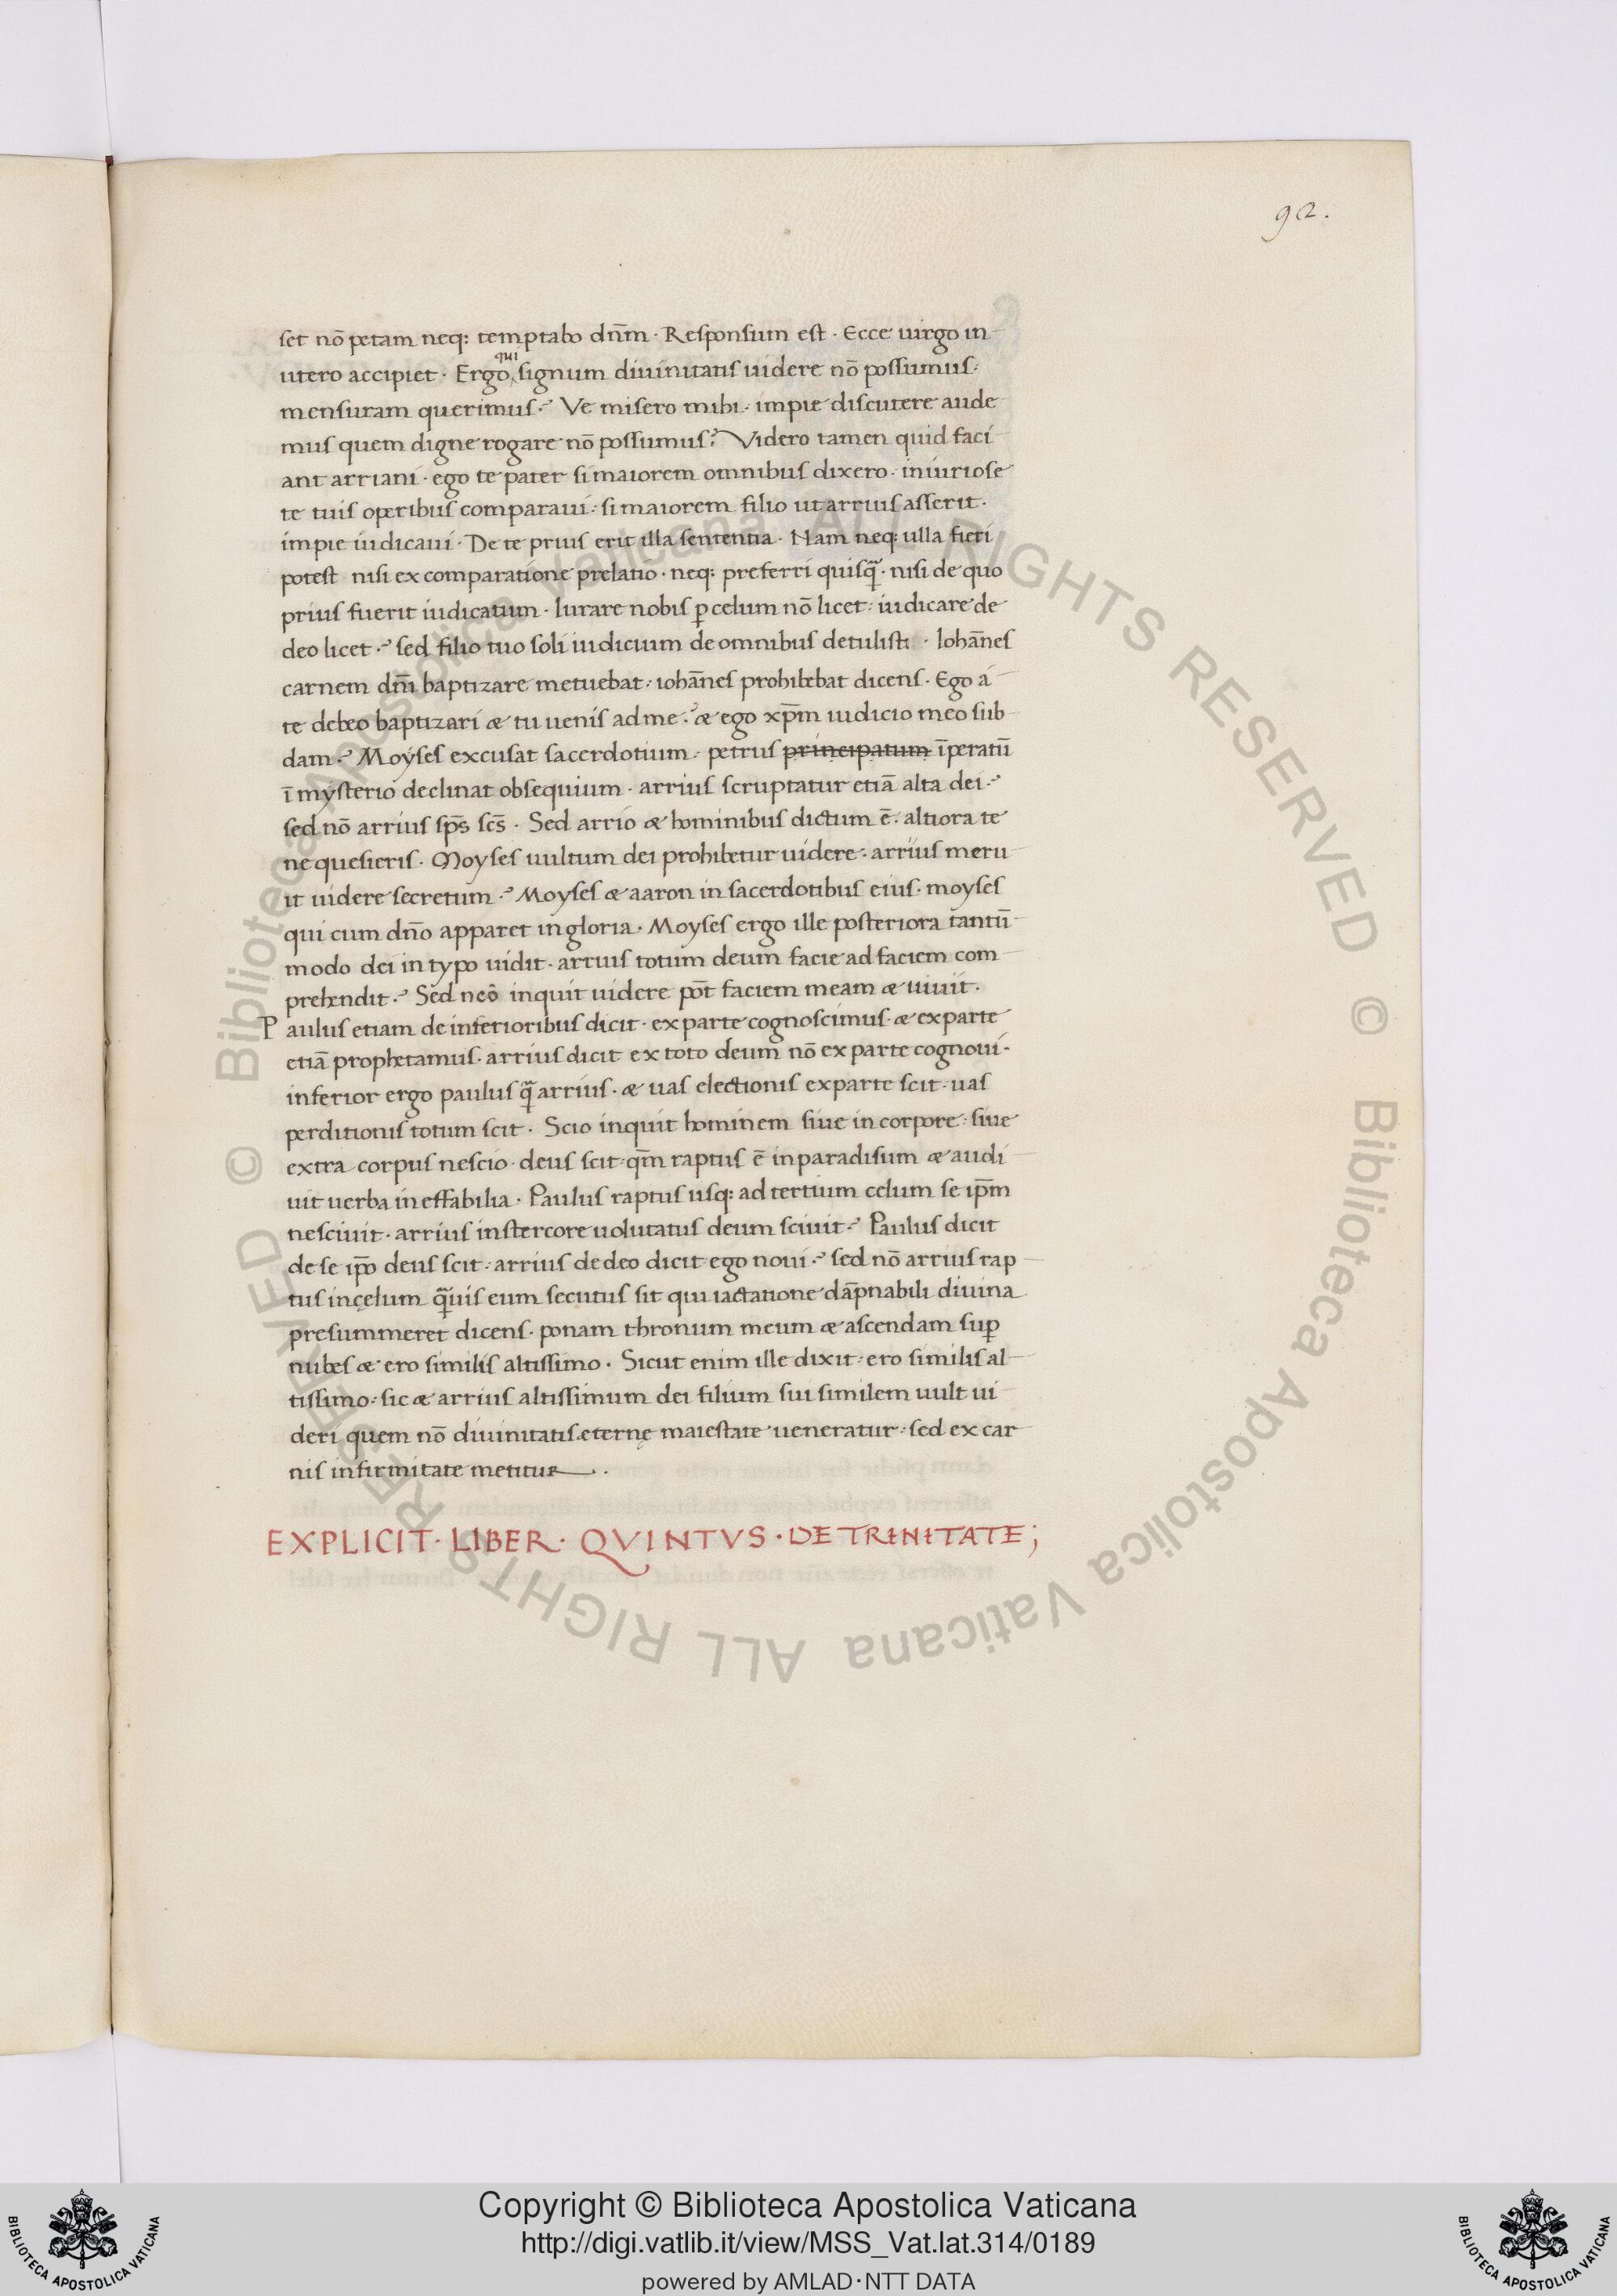 92.
set nō petam neq: temptabo dn̄m · Responsum est · Ecce uirgo in
utero accipiet · Ergo qui signum diuinitatis uidere nō possumus:
mensuram querimus? Ve misero mihi · impie discutere aude
mus quem digne rogare nō possumus? Videro tamen quid faci
ant arriani · ego te pater si maiorem omnibus dixero · iniuriose
te tuis operibus comparaui: si maiorem filio ut arrius asserit ·
impie iudicaui · De te prius erit illa sententia · Nam neq: ulla fieri
potest nisi ex comparatione prelatio · neq: preferri quisq̄ · nisi de quo
prius fuerit iudicatum · Iurare nobis ꝑ celum nō licet: iudicare de
deo licet? sed filio tuo soli iudicium de omnibus detulisti · Iohān̄es
carnem dn̄i baptizare metuebat: iohān̄es prohibebat dicens · Ego á
te debeo baptizari & tu uenis ad me? & ego xp̄m iudicio meo sub
dam? Moyses excusat sacerdotium: petrus principatum īperatū
ī mysterio declinat obsequium · arrius scruptatur etiā alta dei?
sed nō arrius sp̄s sc̄s · Sed arrio & hominibus dictum ē: altiora te
ne quesieris · Moyses uultum dei prohibetur uidere: arrius meru
it uidere secretum? Moyses & aaron in sacerdotibus eius · moyses
qui cum dn̄o apparet in gloria · Moyses ergo ille posteriora tantū
modo dei in typo uidit · arrius totum deum facie ad faciem com
prehendit? Sed neō inquit uidere pōt faciem meam & uiuit ·
Paulus etiam de inferioribus dicit · ex parte cognoscimus · & ex parte
etiā prophetamus · arrius dicit ex toto deum nō ex parte cognoui ·
inferior ergo paulus q̄ arrius · & uas electionis ex parte scit · uas
perditionis totum scit · Scio inquit hominem siue in corpore: siue
extra corpus nescio · deus scit · qm̄ raptus ē in paradisum & audi
uit uerba ineffabilia · Paulus raptus usq: ad tertium celum se ip̄m
nesciuit · arrius in stercore uolutatus deum sciuit? Paulus dicit
de se ip̄o deus scit: arrius de deo dicit ego noui? sed nō arrius rap
tus in cęlum q̄uis eum secutus sit qui iactatione dāpnabili diuina
presummeret dicens · ponam thronum meum & ascendam suꝑ
nubes & ero similis altissimo · Sicut enim ille dixit: ero similis al
tissimo: sic & arrius altissimum dei filium sui similem uult ui
deri quem nō diuinitatis eternę maiestate ueneratur: sed ex car
nis infirmitate metitur.
EXPLICIT · LIBER · QVINTVS · DE TRINITATE;
© Biblioteca Apostolica Vaticana ALL RIGHTS RESERVED
© Biblioteca Apostolica Vaticana ALL RIGHTS RESERVED
BIBLIOTECA APOSTOLICA VATICANA
Copyright © Biblioteca Apostolica Vaticana
http://digi.vatlib.it/view/MSS_Vat.lat.314/0189
powered by AMLAD·NTT DATA
BIBLIOTECA APOSTOLICA VATICANA